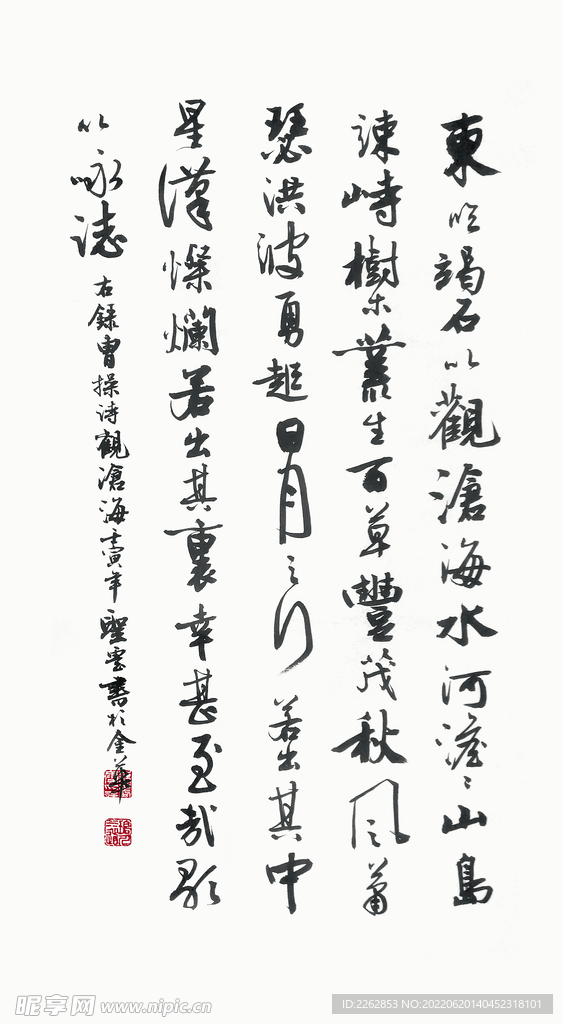 東临竭石以觀滄海水河澹々山島
竦峙樹木叢生百草豐茂秋風蕭
瑟洪波勇起日月之行若出其中
星漢燦爛若出其裏幸甚至哉歌
以咏誌
右録曹操诗觀滄海壬寅年聖雲書於金華
昵享网 www.nipic.cn
ID:2262853 NO:20220620140452318101